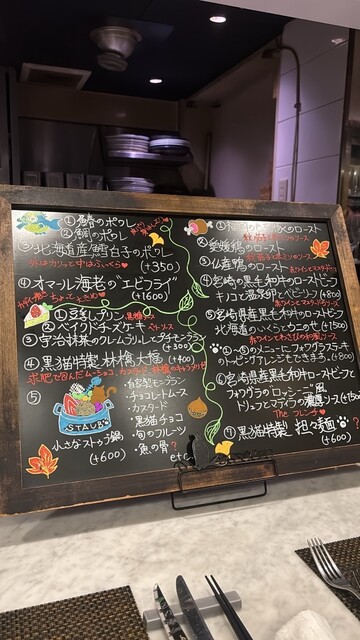 ①鰆のポワレ
②鯛のポワレ
③北海道産鱈白子のポワレ
外はカリッと中はふっくら♥
(+350)
④オマール海老の"エビフライ"
(+1600)
①豆乳プリン 黒糖ソース
②ベイクドチーズケーキ
③宇治抹茶のクレームブリュレとダークチェリー
(+300)
④黒猫特製 林檎大福 (+400)
⑤
STAUB
小さなストウブ鍋
(+600)
・自家製モンブラン
・チョコレートムース
・カスタード
・黒猫チョコ
・旬のフルーツ
・魚の骨?
etc
のロースト
②愛媛鴨のロースト
③仏産鴨のロースト
④宮崎県産黒毛和牛のローストビーフ
キノコと温泉卵とベビーリーフ(+800)
⑤宮崎県産黒毛和牛のローストビーフ
北海道のいくらとウニのせ(+1500)
①~⑤のメニューにフォワグラ
のトッピングアレンジもできます。(+800)
⑥宮崎県産黒毛和牛ローストビーフと
フォワグラのロッシーニ"風"
トリュフとマデラの濃厚ソース(+1500)
The フレンチ♥
⑦黒猫特製 担々麺?
(+600)